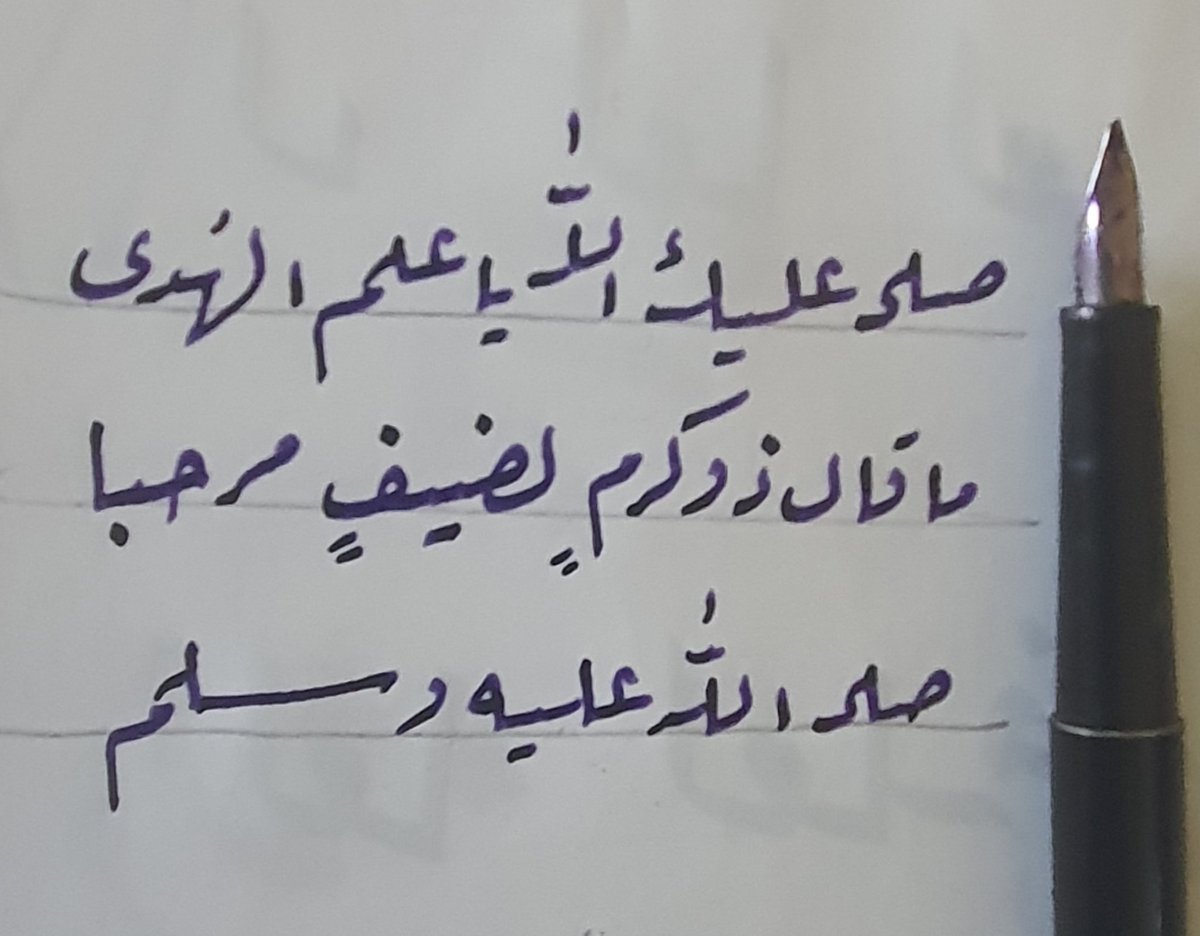 صلى عليك اللّٰه يا علم الهدى
ما قال ذو كرمٍ لضيفٍ مرحبا
صلى اللّٰه عليه وسلم